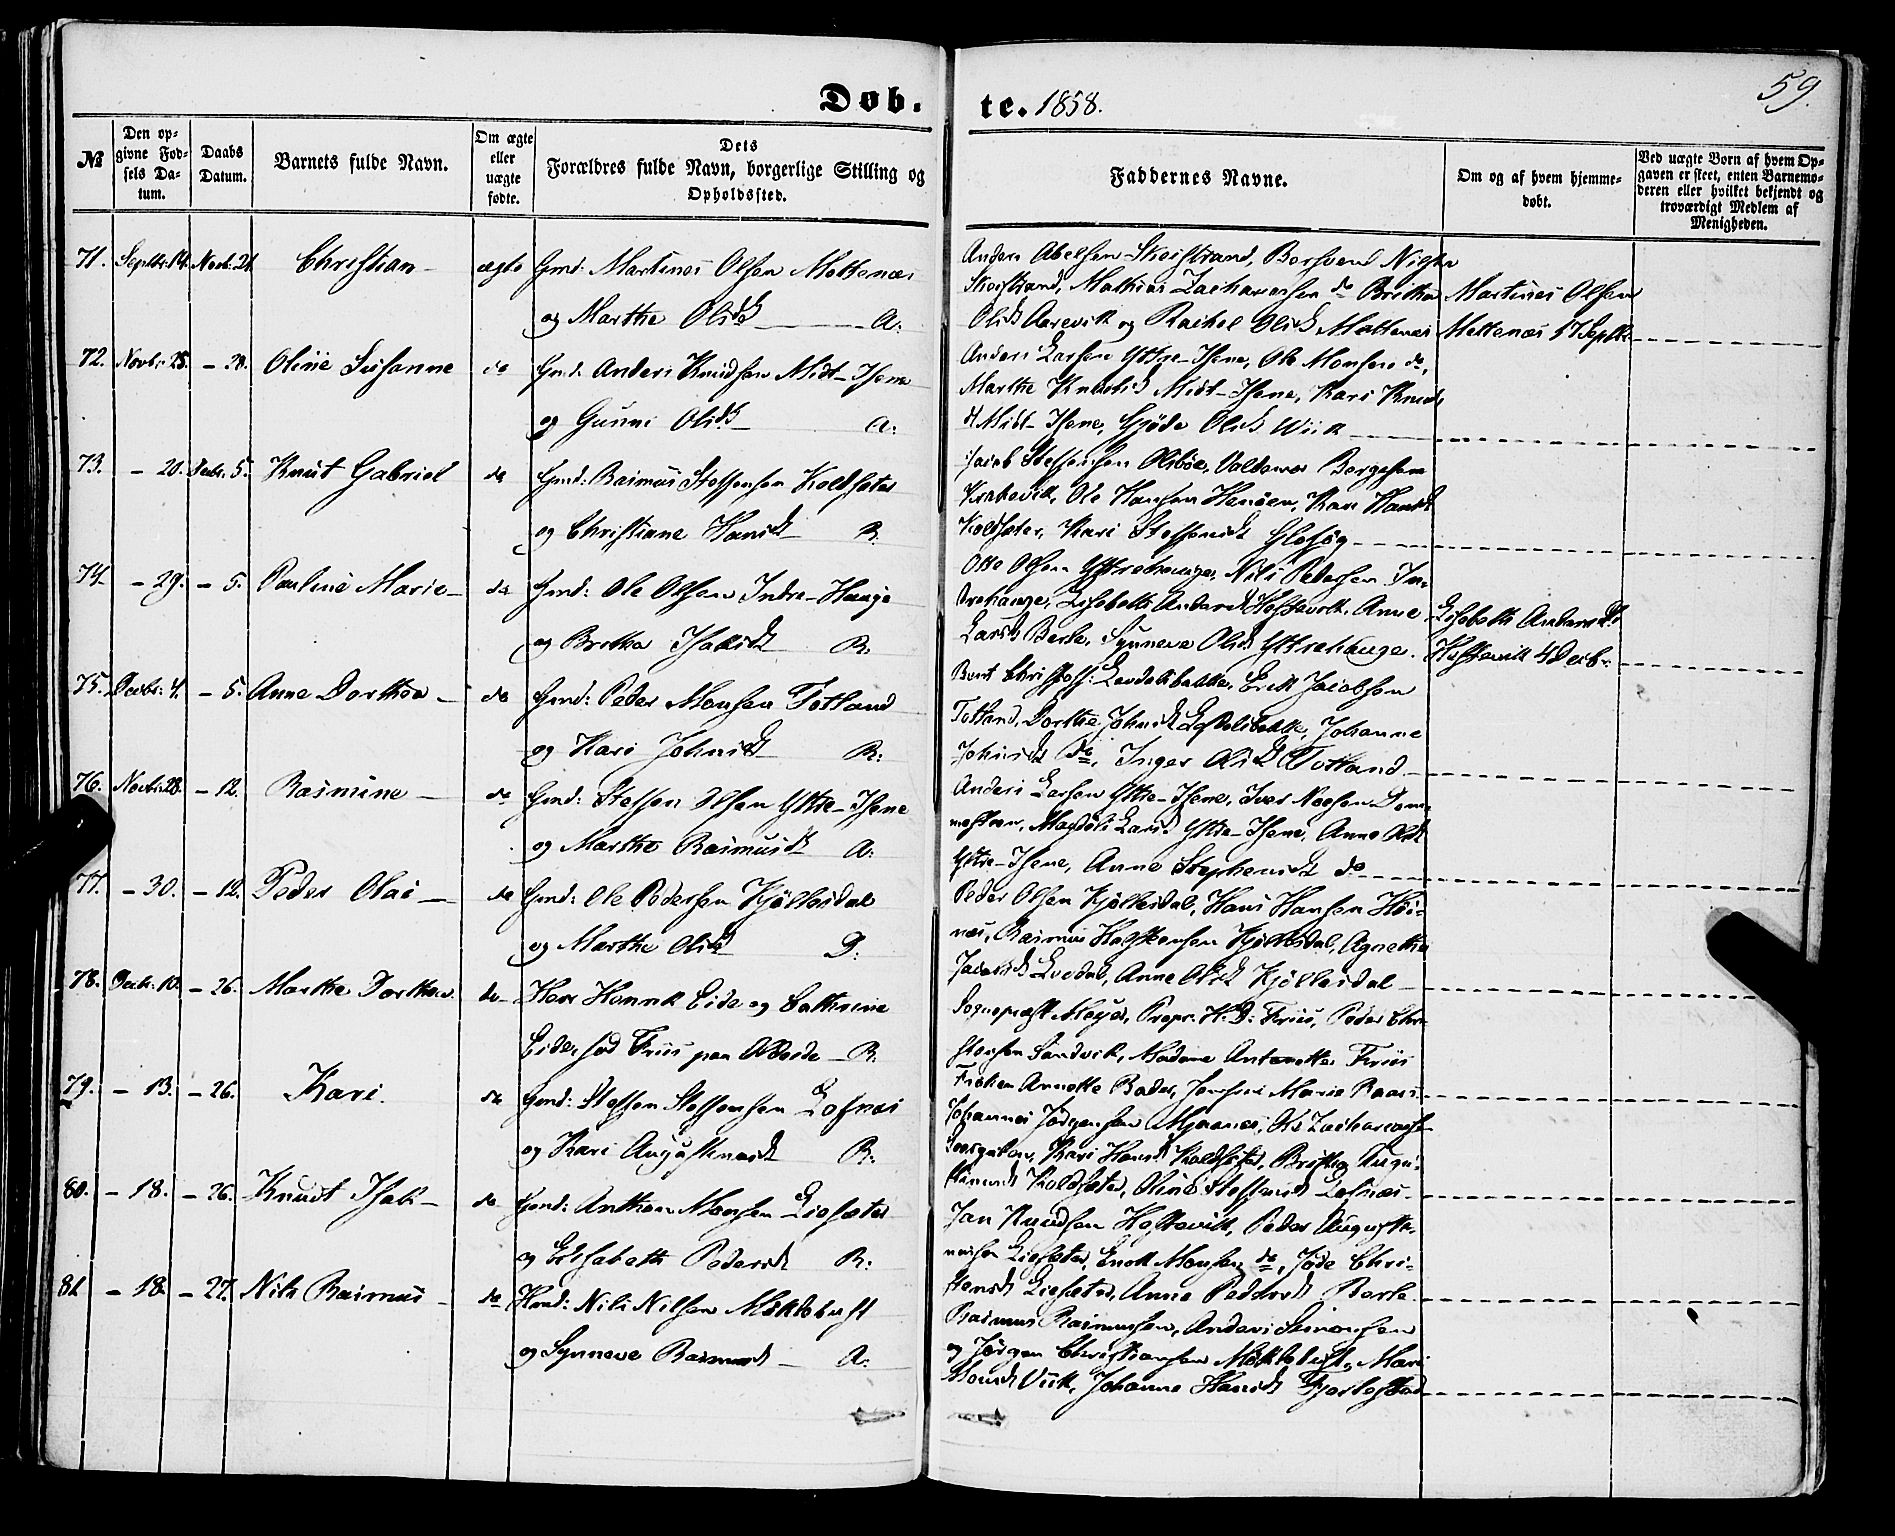 Døb. te. 1858.
59.
№
Den opgivne Fødsels Datum.
Daabs Datum.
Barnets fulde Navn.
Om ægte eller uægte fødte.
Dets Forældres fulde Navn, borgerlige Stilling og Opholdssted.
Faddernes Navne.
Om og af hvem hjemmedøbt.
Ved uægte Børn af hvem Opgaven er skeet, enten Barnemoderen eller hvilket bekjendt og troværdigt Medlem af Menigheden.
71. Septbr: 14. Novbr. 21. Christian ægte Gmd: Martinus Olsen Mettenæs
og Marthe Olsdt A:
Anders Abelsen Skoistrand, Berhvend Nilsen
Skoistrand, Mathias Zachariasen do Brithe
Olsdt Aarevik og Rachel Olsdt Mettenæs
Martinus Olsen
Mettenæs 17 Septbr.
72. Novbr: 25. - 28. Oline Susanne do Gmd. Anders Knudsen Midt-Hjene
og Gunni Olsdt A:
Anders Larsen Yttre-Hjene, Ole Monsen do,
Marthe Knudsdt Midt-Hjene, Kari Knuds
dt Midt-Hjene, Gjøde Olsdt Wiik
73. - 20. Decbr. 5. Knut Gabriel do Gmd: Rasmus Steffensen Koldsæter
og Christiane Hansdt R.
Jacob Steffensen Oldeide, Valdemar Borgesen
Krakevik, Ole Hansen Hanøen, Kari Hansdt
Koldsæter, Kari Steffensdt
74. - 29. - 5. Pauline Marie do Gmd: Ole Olsen Indre-Hauge
og Brithe Isaksdt R:
Otto Olsen Yttrehauge, Nils Pedersen In-
drehauge, Lisabeth Andersdt Hoftevik, Anne
Larsdt Berle, Synneve Olsdt Yttrehauge.
Lisabeth Andersdt
Hoftevik 4 Decbr:
75. Decbr: 4. - 5. Anne Dorthea do Gmd: Peder Monsen Totland
og Kari Johnsdt R:
Bent Christoff: Levdalsbakke, Erik Jacobsen
Totland, Dorthe Johnsdt Levdalsbakke, Johanne
Johnsdt do, Inger Olsdt Totland
76. Novbr: 28. - 12. Rasmine do Gmd: Steffen Olsen Yttre-Hjene
og Marthe Rasmusdt A:
Anders Larsen Yttre-Hjene, Iver Noesen Dom-
mesteen, Magdeli Larsd Yttre-Hjene, Anne Olsdt
Yttre-Hjene, Anne Stephensdt do
77. - 30. - 12. Peder Olai do Gmd: Ole Pedersen Kjøllesdal
og Marthe Olsdt D:
Peder Olsen Kjøllesdal, Hans Hansen Høi-
næs, Rasmus Halstensen Kjøllesdal, Agnethe
Jacobsdt Levdal, Anne Olsdt Kjøllesdal
78. Decbr. 10. - 26. Marthe Dorthea do Herr Henrik Eide og Cathrine
Eide, fød Friis paa Oldeide R:
Sognepræst Meyer, Propr. H. D. Friis, Peder Chri-
stensen Sandvik, Madame Antonette Friis
Frøken Annette Bader, Jomfrue Marie Raas
79. - 13. - 26. Kari. do Gmd: Steffen Steffensen Lofnæs
og Kari Augustinusdt R:
Johannes Jørgensen Myrnæs, Zachariasen
Kari Hansdt Koldsæter, Brithe Augu-
stinusdt Koldsæter, Oline Steffensdt Lofnæs
80. - 18. - 26. Knudt Isak do Gmd: Anthon Monsen Liesæter
og Elisabeth Pedersdt R:
Jan Knudsen Hoftevik, Peder Augusti-
nusen Liesæter, Enok Monsen do, Jøde Chri-
stensdt Liesæter, Anne Pedersdt Berle
81. - 18. - 27. Nils Rasmus do Hmd: Nils Nilsen Mæktebust
og Synneve Rasmusdt A:
Rasmus Rasmussen, Anders Simonsen
og Jørgen Christiansen Mæktebust, Mari
Monsdt Viik, Johanne Hansdt